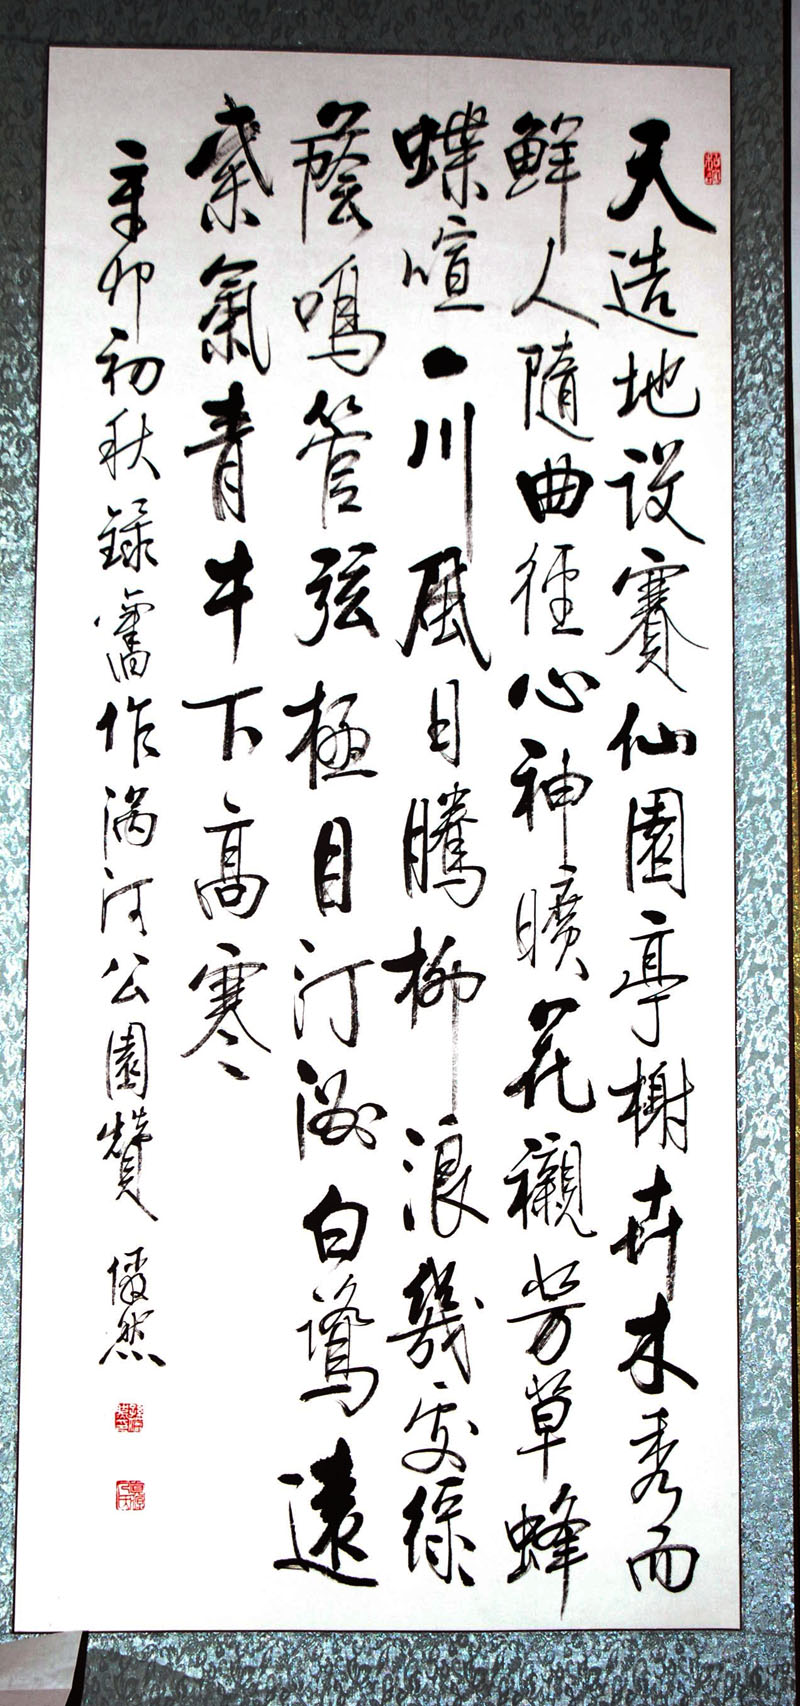 天造地设赛仙園亭榭卉木秀而
鮮人隨曲徑心神曠花襯芳草蜂
蝶喧一川風目騰柳浪幾處綠
蔭鳴管弦極目汀洲白鷺遠
紫氣青牛下高寒
辛卯初秋錄舊作涡河公園贊 翛然